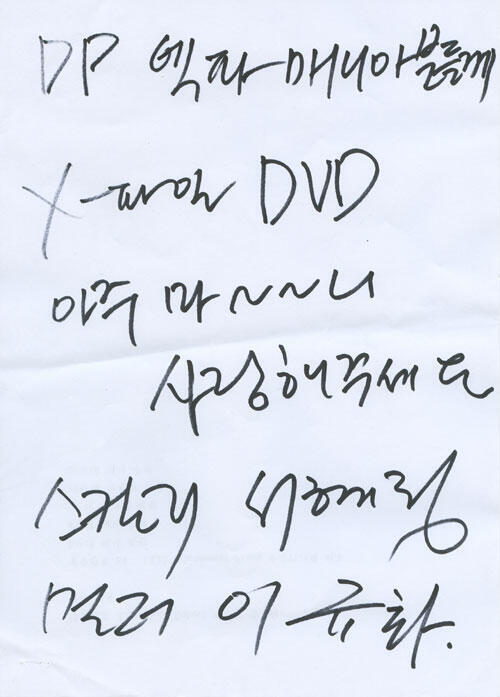 DP 엑파매니아분들께
X-파일 DVD
아주 마~~니
사랑해주세요
스컬리 서혜정
멀더 이규화.